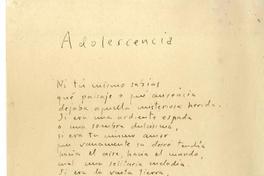 Adolescencia
Ni tú mismo sabías
qué paisaje o qué ausencia
dejaba aquella misteriosa herida.
Si era una ardiente espada
o una sombra dulcísima,
si era tu mismo amor
que vanamente su dardo tendía
hacia el aire, hacia el mundo,
cual una solitaria melodía.
Si era la vasta tierra,